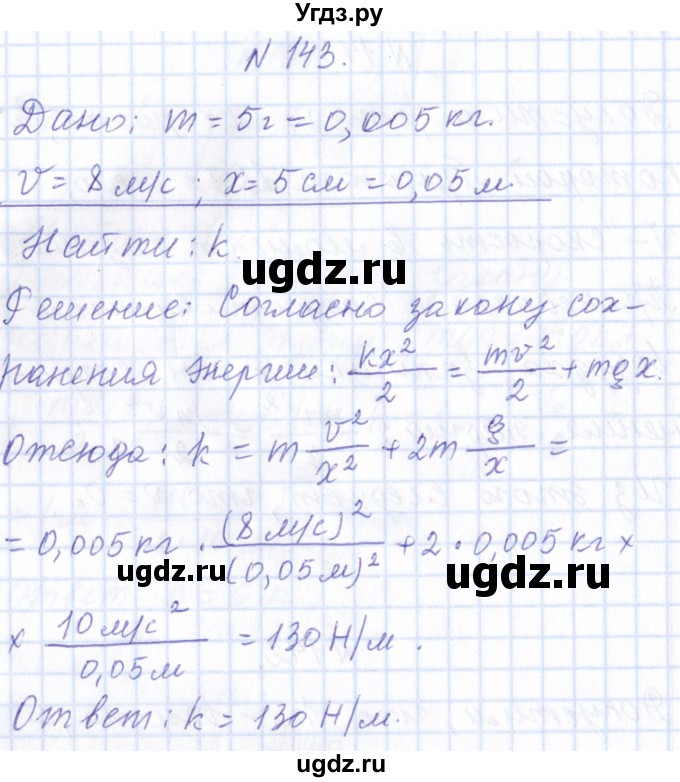 Угдз.ру
N 143.
Дано: m = 5г = 0,005 кг.
v = 8 м/с ; x = 5 см = 0,05 м.
Найти: k.
ugdz.ru
Решение: Согласно закону сох-
ранения энергии: kx²/2 = mv²/2 + mgx.
Отсюда: k = m v²/x² + 2m g/x =
= 0,005 кг · (8 м/с)²/(0,05 м)² + 2 · 0,005 кг ×
ugdz.ru ugdz.ru
× 10 м/с²/0,05 м = 130 Н/м .
Ответ: k = 130 Н/м.
ugdz.ru